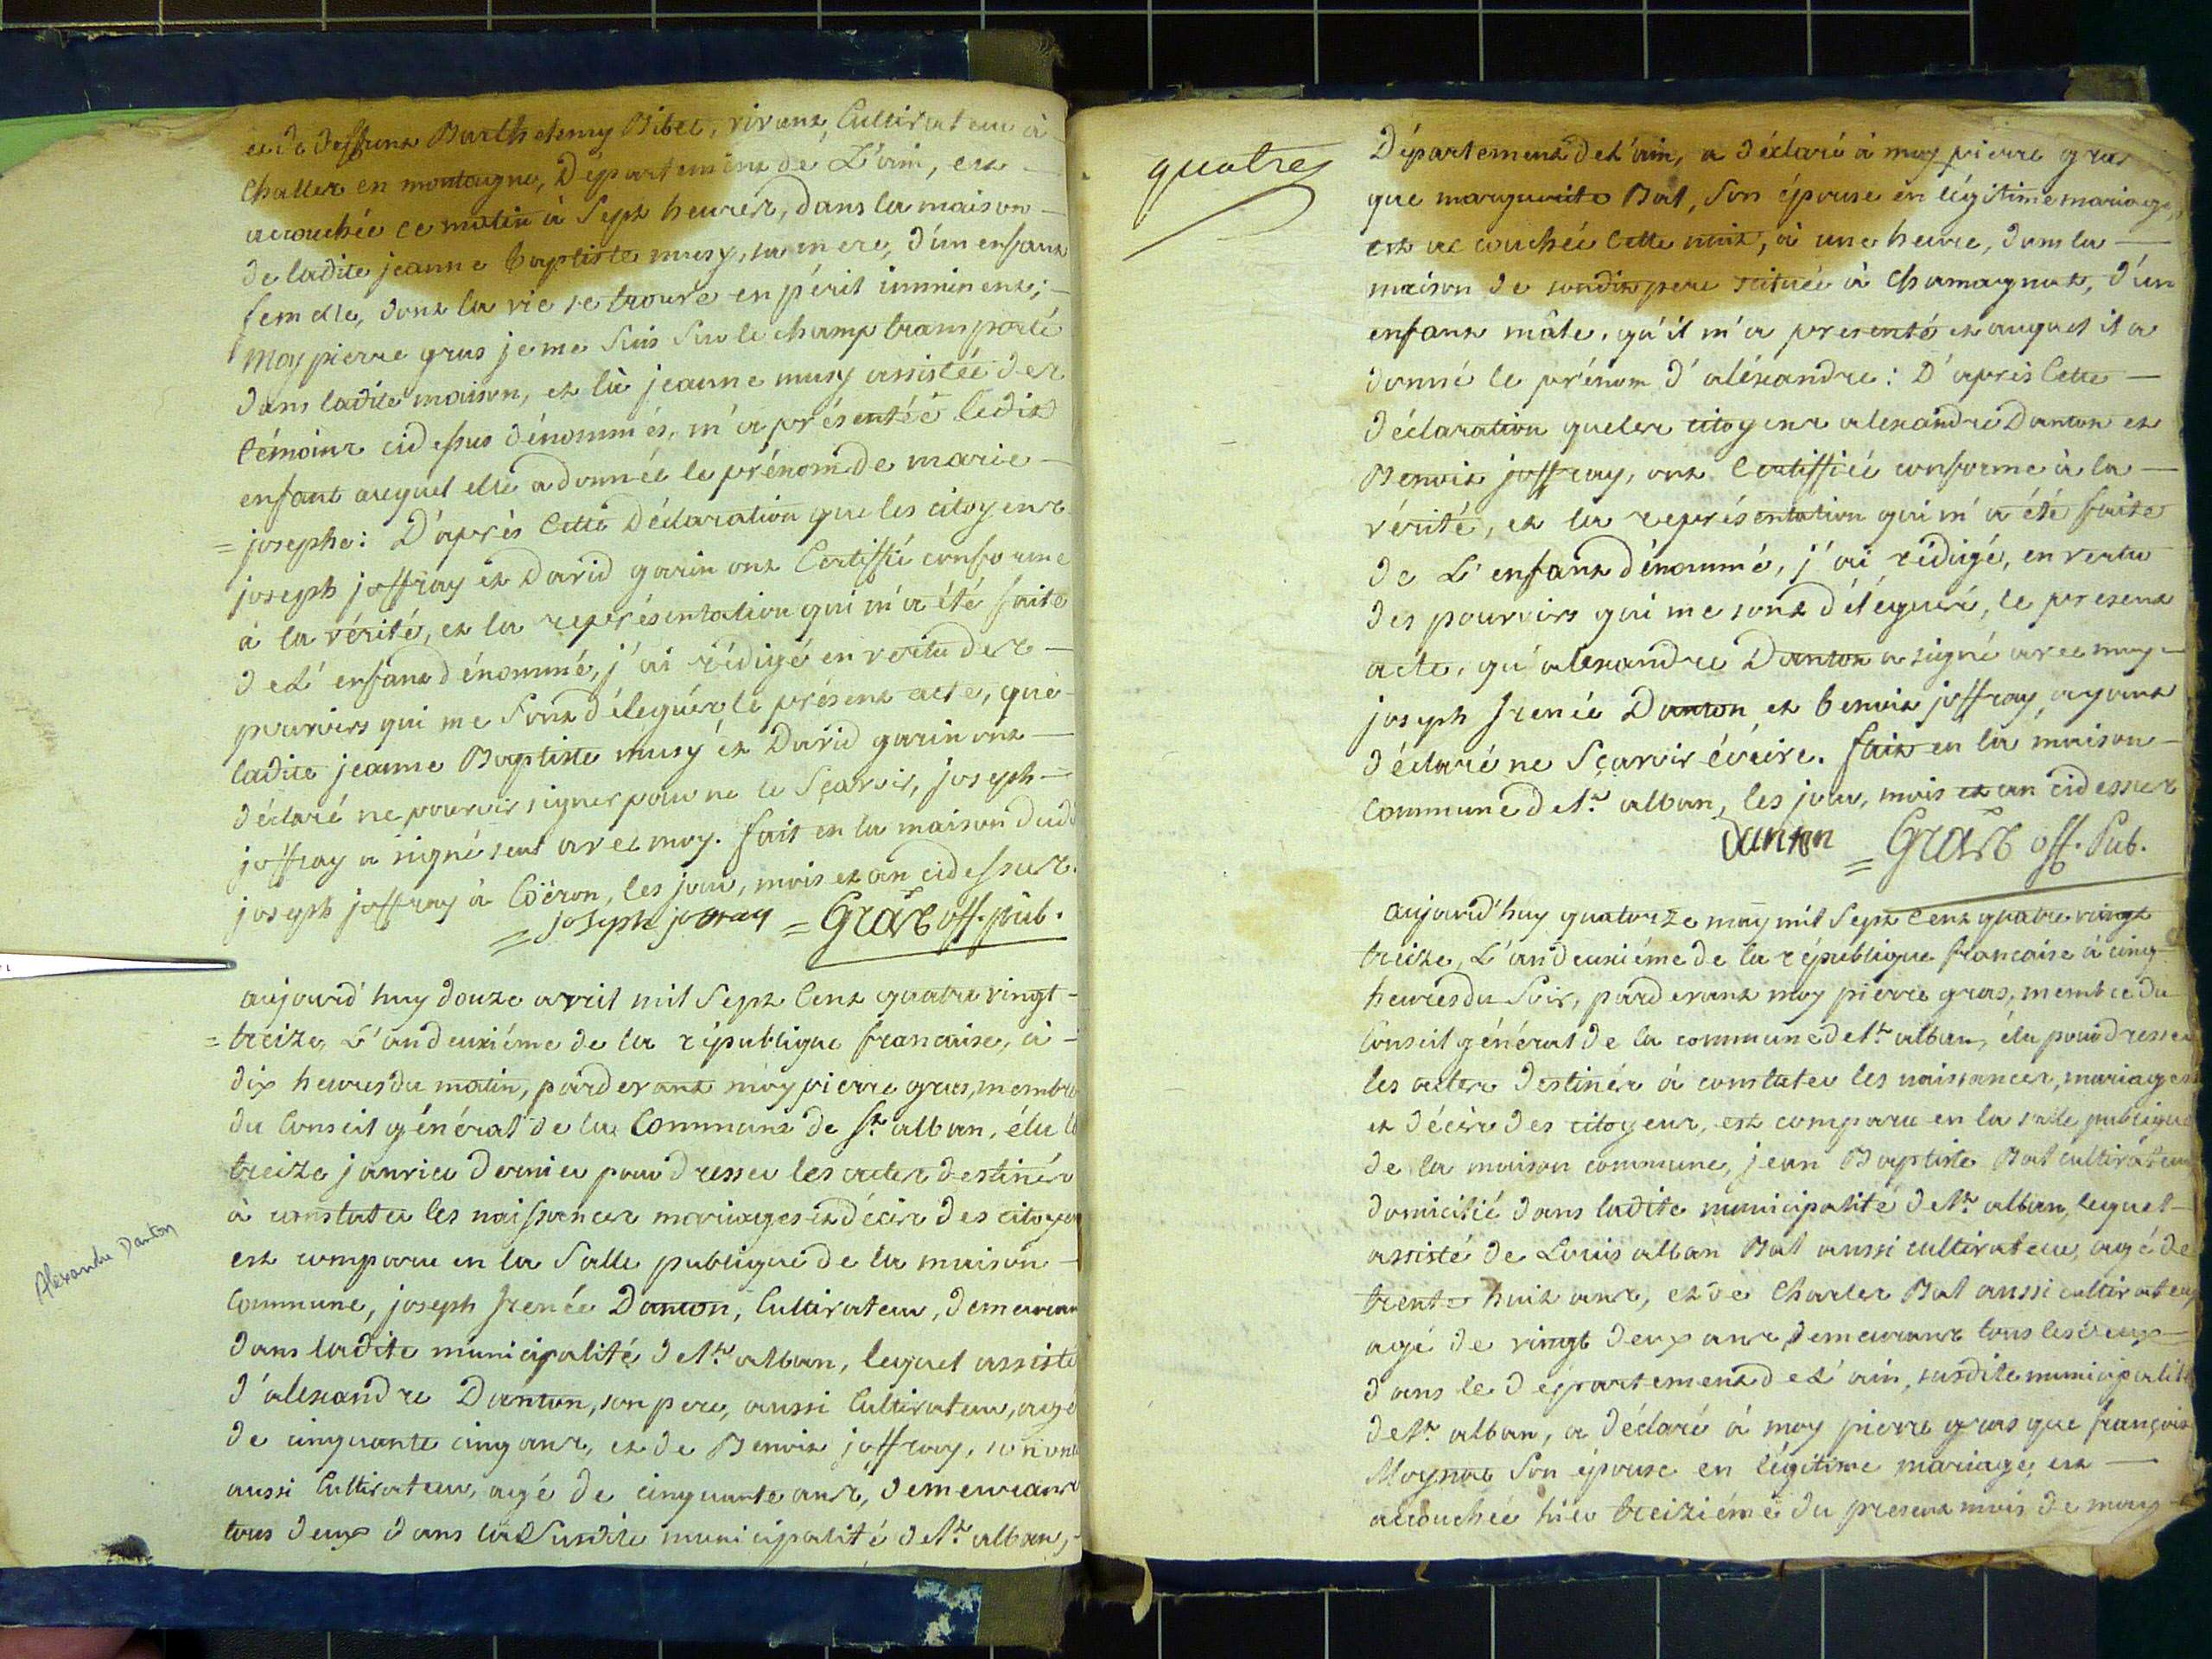 et de deffunt Barthelemy Bibet, vivant, Cultivateur à
Challes en montagne, Département de L'ain, est
acouchée ce matin à Sept heures, dans la maison
de ladite jeanne baptiste musy, sa mere, d'un enfant
femelle, dont la vie se trouve en péril imminent;
Moy pierre gras je me Suis Sur le champ transporté
dans ladite maison, et là jeanne musy assistée des
témoins cidessus dénommés, m'a présentée ledit
enfant auquel elle a donnée le prénom de marie
= josephe: D'après Cette Déclaration que les citoyens
joseph joffray et David garin ont Certiffié conforme
à la vérité, et la représentation qui m'a été faite
de L'enfant dénommé, j'ai rédigé en vertu des
pouvoirs qui me Sont délegués le présent acte, que
ladite jeanne Baptiste musy et David garin ont
déclaré ne pouvoir signer pour ne le Sçavoir, joseph
joffray a signé seul avec moy. fait en la maison dud
joseph joffray à Coëron, les jour, mois et an cidessus.
= joseph jofray = Gras off. pub.
aujourd'huy douze avril mil Sept Cent quatre vingt
= treize, L'an deuxiéme de la république francaise, à
dix heures du matin, pardevant moy pierre gras, membre
du Conseil général de la Commune de St. alban, élu le
treize janvier dernier pour dresser les actes destinés
à constater les naissances mariages et décès des citoyens
est comparu en la Salle publique de la maison
Commune, joseph Irenée Danton, Cultivateur, demeurant
dans ladite municipalité de St. alban, lequel assisté
d'alexandre Danton, son pere, aussi Cultivateur, agé
de cinquante cinq ans, et de Benoit joffray, son oncle
aussi Cultivateur, agé de cinquante ans, demeurans
tous deux dans la Susdite municipalité de St. alban,
Alexandre Danton
quatre
Département de L'ain, a déclaré à moy pierre gras
que marguerite Bat, son épouse en légitime mariage,
est accouchée Cette nuit, à une heure, dans la
maison de sondit pere scituée à Chamagnat, d'un
enfant mâle, qu'il m'a presenté et auquel il a
donné le prénom d'aléxandre: D'après Cette
déclaration que les citoyens alexandre Danton et
Benoit joffray, ont Certiffiée conforme à la
vérité, et la représentation qui m'a été faite
de L'enfant dénommé, j'ai rédigé, en vertu
des pouvoirs qui me sont délegués, le present
acte, qu'alexandre Danton a signé avec moy
joseph Irenée Danton et benoit joffray ayant
déclaré ne Sçavoir écrire. fait en la maison
Commune de St. alban, les jour, mois et an cidessus
Danton = Gras off. Pub.
aujourd'huy quatorze may mil Sept Cent quatre vingt
treize, L'an deuxiéme de la république francaise à cinq
heures du Soir, pardevant moy pierre gras, membre du
Conseil général de la commune de St. alban, élu pour dresser
les actes destinés à constater les naissances, mariages
et décès des citoyens, est comparu en la salle publique
de la maison commune, jean Baptiste Bat cultivateur
domicilié dans ladite municipalité de St. alban, lequel
assisté de Louis alban Bat aussi cultivateur, agé de
trente huit ans, et de Charles Bat aussi cultivateur
agé de vingt deux ans, demeurans tous les deux
dans le département de L'ain, susdite municipalité
de St. alban, a déclaré à moy pierre gras que françoise
Moynat Son épouse en légitime mariage, est
accouchée hier treiziéme du present mois de may